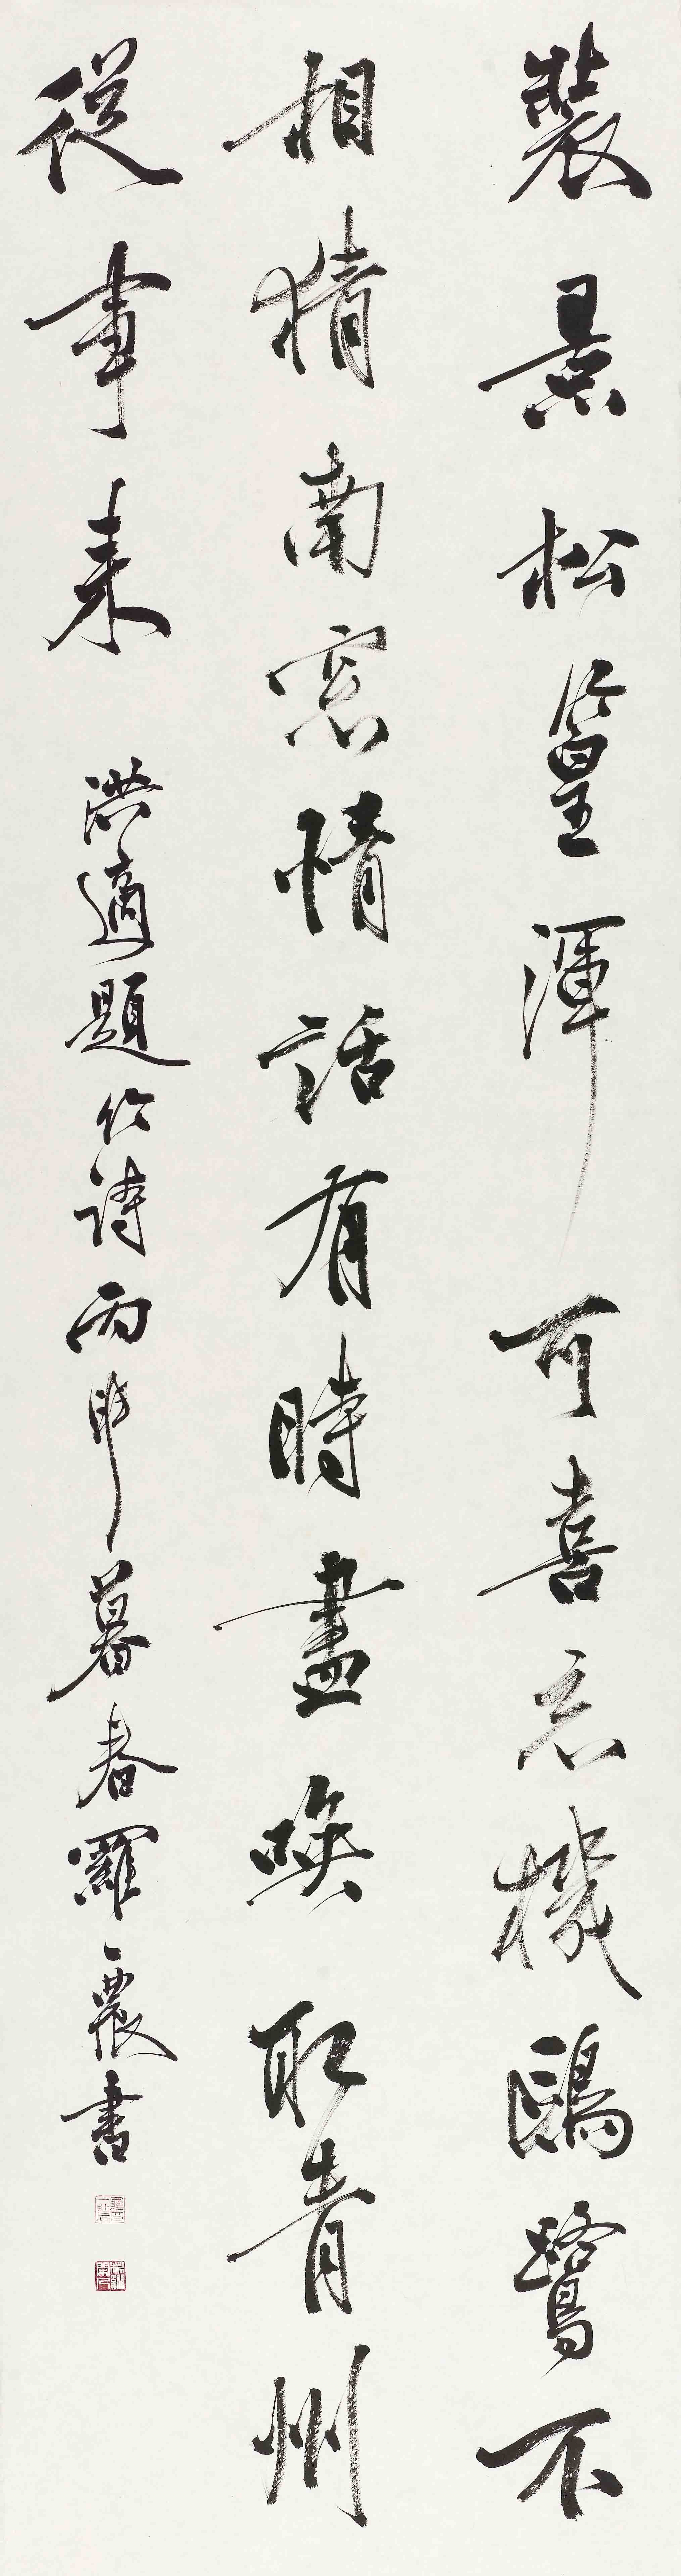 裝景松篁渾可喜忘機鷗鷺不
相猜南窓情話有時盡喚取青州
從事來
洪適題竹詩丙申暮春羅一農書